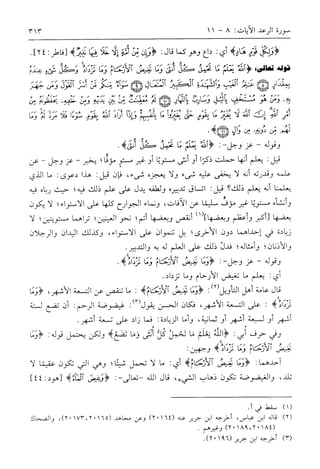 سورة الرعد الآيات: ٨ - ١١ ٣١٣
﴿وَلِكُلِّ قَوْمٍ هَادٍ﴾ أي: داع وهو كما قال: ﴿وَإِن مِّنْ أُمَّةٍ إِلَّا خَلَا فِيهَا نَذِيرٌ﴾ [فاطر: ٢٤].
قوله تعالى: ﴿اللَّهُ يَعْلَمُ مَا تَحْمِلُ كُلُّ أُنثَى وَمَا تَغِيضُ الْأَرْحَامُ وَمَا تَزْدَادُ وَكُلُّ شَيْءٍ عِندَهُ
بِمِقْدَارٍ ۝ عَالِمُ الْغَيْبِ وَالشَّهَادَةِ الْكَبِيرُ الْمُتَعَالِ ۝ سَوَاءٌ مِّنكُم مَّنْ أَسَرَّ الْقَوْلَ وَمَن جَهَرَ
بِهِ وَمَنْ هُوَ مُسْتَخْفٍ بِاللَّيْلِ وَسَارِبٌ بِالنَّهَارِ ۝ لَهُ مُعَقِّبَاتٌ مِّن بَيْنِ يَدَيْهِ وَمِنْ خَلْفِهِ يَحْفَظُونَهُ مِنْ
أَمْرِ اللَّهِ إِنَّ اللَّهَ لَا يُغَيِّرُ مَا بِقَوْمٍ حَتَّى يُغَيِّرُوا مَا بِأَنفُسِهِمْ وَإِذَا أَرَادَ اللَّهُ بِقَوْمٍ سُوءًا فَلَا مَرَدَّ لَهُ وَمَا
لَهُم مِّن دُونِهِ مِن وَالٍ ۝﴾.
وقوله - عز وجل-: ﴿اللَّهُ يَعْلَمُ مَا تَحْمِلُ كُلُّ أُنثَى﴾.
قيل: يعلم أنها حملت ذكرًا أو أنثى مستويًا أو غير مستو مؤفًا؛ يخبر - عز وجل - عن
علمه وقدرته أنه لا يخفى عليه شيء ولا يعجزه شيء، فإن قيل: هذا دعوى: ما الذي
يعلمنا أنه يعلم ذلك؟ قيل: اتساق تدبيره ولطفه يدل على علم ذلك فيه؛ حيث رباه فيه
وأنشأه مستويًا غير مؤف سليمًا عن الآفات، ونماء الجوارح كلها على الاستواء؛ لا يكون
بعضها [أكبر وأعظم وبعضها](١) أنقص وبعضها أتم؛ نحو العينين؛ تراهما مستويتين؛ لا
زيادة في إحداهما دون الأخرى؛ بل تنموان على الاستواء، وكذلك اليدان والرجلان
والأذنان؛ وأمثاله؛ فدل ذلك على العلم له به والتدبير.
وقوله - عز وجل-: ﴿وَمَا تَغِيضُ الْأَرْحَامُ وَمَا تَزْدَادُ﴾.
أي: يعلم ما تغيض الأرحام وما تزداد.
قال عامة أهل التأويل(٢): ﴿وَمَا تَغِيضُ الْأَرْحَامُ﴾: ما تنقص عن التسعة الأشهر، ﴿وَمَا
تَزْدَادُ﴾: على التسعة الأشهر، فكان الحسن يقول(٣): غيضوضة الرحم: أن تضع لستة
أشهر أو لسبعة أشهر أو ثمانية، وأما الزيادة: فما زاد على تسعة أشهر.
وفي حرف أبي: ﴿اللَّهُ يَعْلَمُ مَا تَحْمِلُ كُلُّ أُنثَى وَمَا تَضَعُ﴾ ولكن يحتمل قوله: ﴿وَمَا
تَغِيضُ الْأَرْحَامُ وَمَا تَزْدَادُ﴾ وجهين:
أحدهما: ﴿وَمَا تَغِيضُ الْأَرْحَامُ﴾ أي: ما لا تحمل شيئًا؛ وهي التي تكون عقيمًا لا
تلد، والغيضوضة تكون ذهاب الشيء، قال الله -تعالى-: ﴿وَغِيضَ الْمَاءُ﴾ [هود: ٤٤]
(١) سقط في أ.
(٢) قاله ابن عباس، أخرجه ابن جرير عنه (٢٠١٦٤) وعن مجاهد (٢٠١٦٥، ٢٠١٧٣)، والضحاك
(٢٠١٨٤، ٢٠١٨٩) وغيرهم.
(٣) أخرجه ابن جرير (٢٠١٩٦).